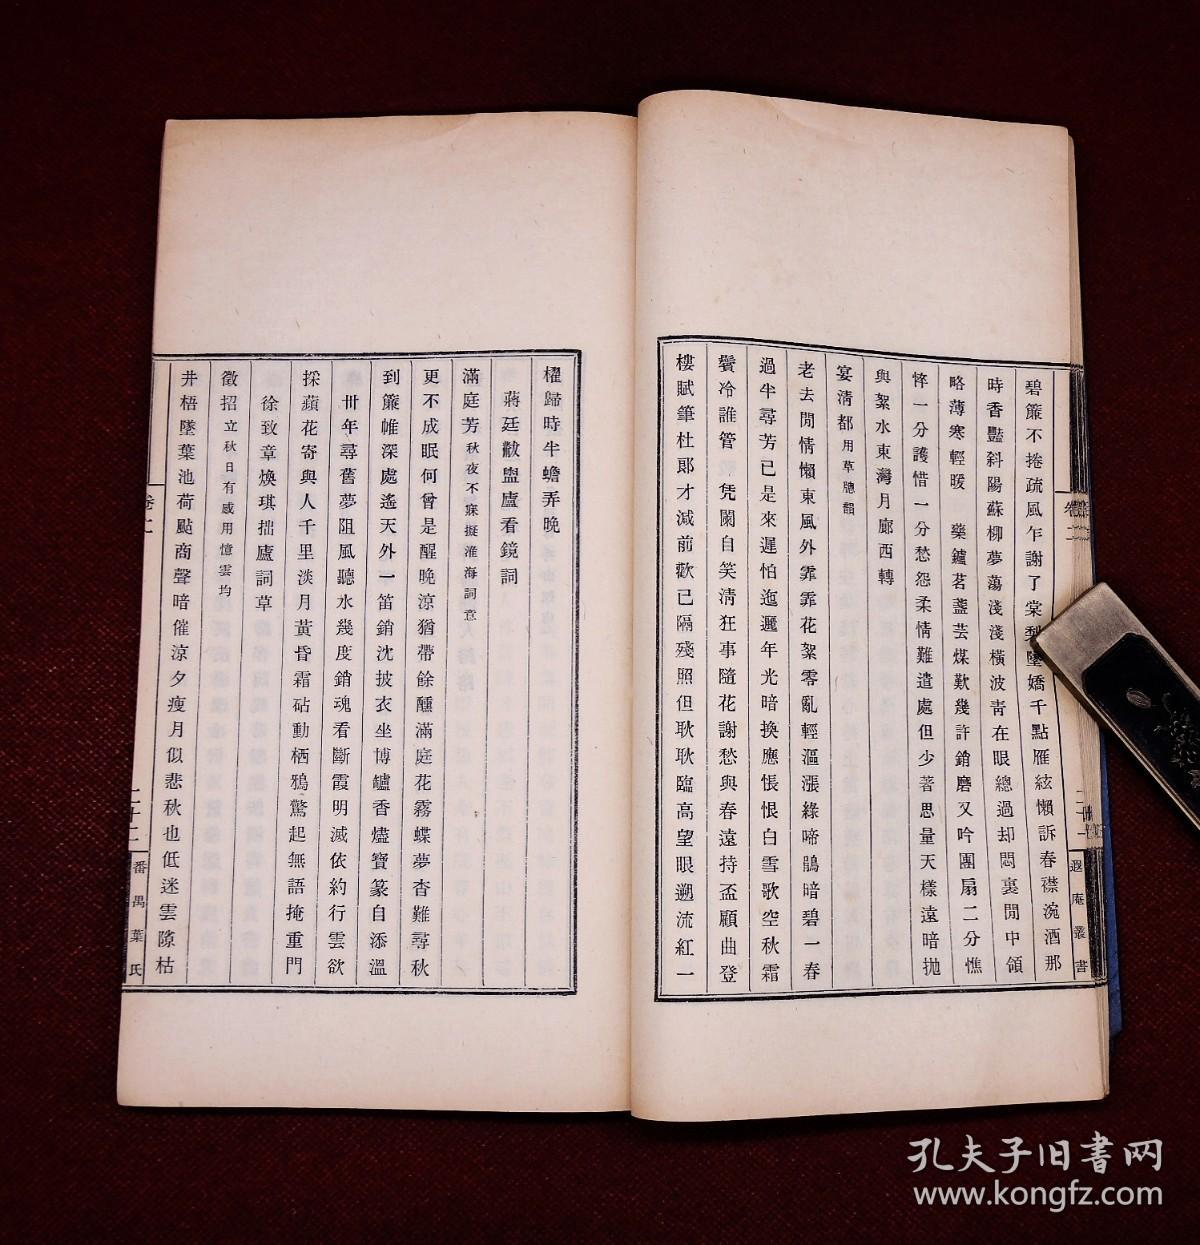 碧簾不捲疏風乍謝了棠梨墜嬌千點雁絃懶訴春襟涴酒那
時香豔斜陽蘇柳夢蕩淺淺橫波靑在眼總過却悶裏閒中領
略薄寒輕暖　藥鑪茗盞芸煤歎幾許銷磨又吟團扇二分憔
悴一分護惜一分愁怨柔情難遣處但少著思量天樣遠暗抛
與絮水東灣月廊西轉
宴淸都用草牕韻
老去閒情懶東風外霏霏花絮零亂輕漚漲綠啼鵑暗碧一春
過半尋芳已是來遲怕迤邐年光暗換應悵恨白雪歌空秋霜
鬢冷誰管　凭闌自笑淸狂事隨花謝愁與春遠持盃顧曲登
樓賦筆杜郞才減前歡已隔殘照但耿耿臨高望眼遡流紅一
遐庵叢書
櫂歸時半蟾弄晚
蔣廷黻盥廬看鏡詞
滿庭芳秋夜不寐擬淮海詞意
更不成眠何曾是醒晚涼猶帶餘醺滿庭花霧蝶夢杳難尋秋
到簾帷深處遙天外一笛銷沈披衣坐博鑪香燼寶篆自添溫
卅年尋舊夢阻風聽水幾度銷魂看斷霞明滅依約行雲欲
採蘋花寄與人千里淡月黃昏霜砧動栖鴉驚起無語掩重門
徐致章煥琪拙廬詞草
徵招立秋日有感用憶雲均
井梧墜葉池荷颭商聲暗催涼夕瘦月似悲秋也低迷雲隙枯
卷二
二十二
番禺葉氏
孔夫子旧書网
www.kongfz.com